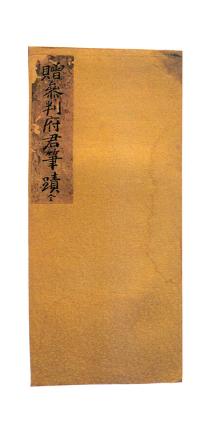 贈叅判府君筆蹟 全